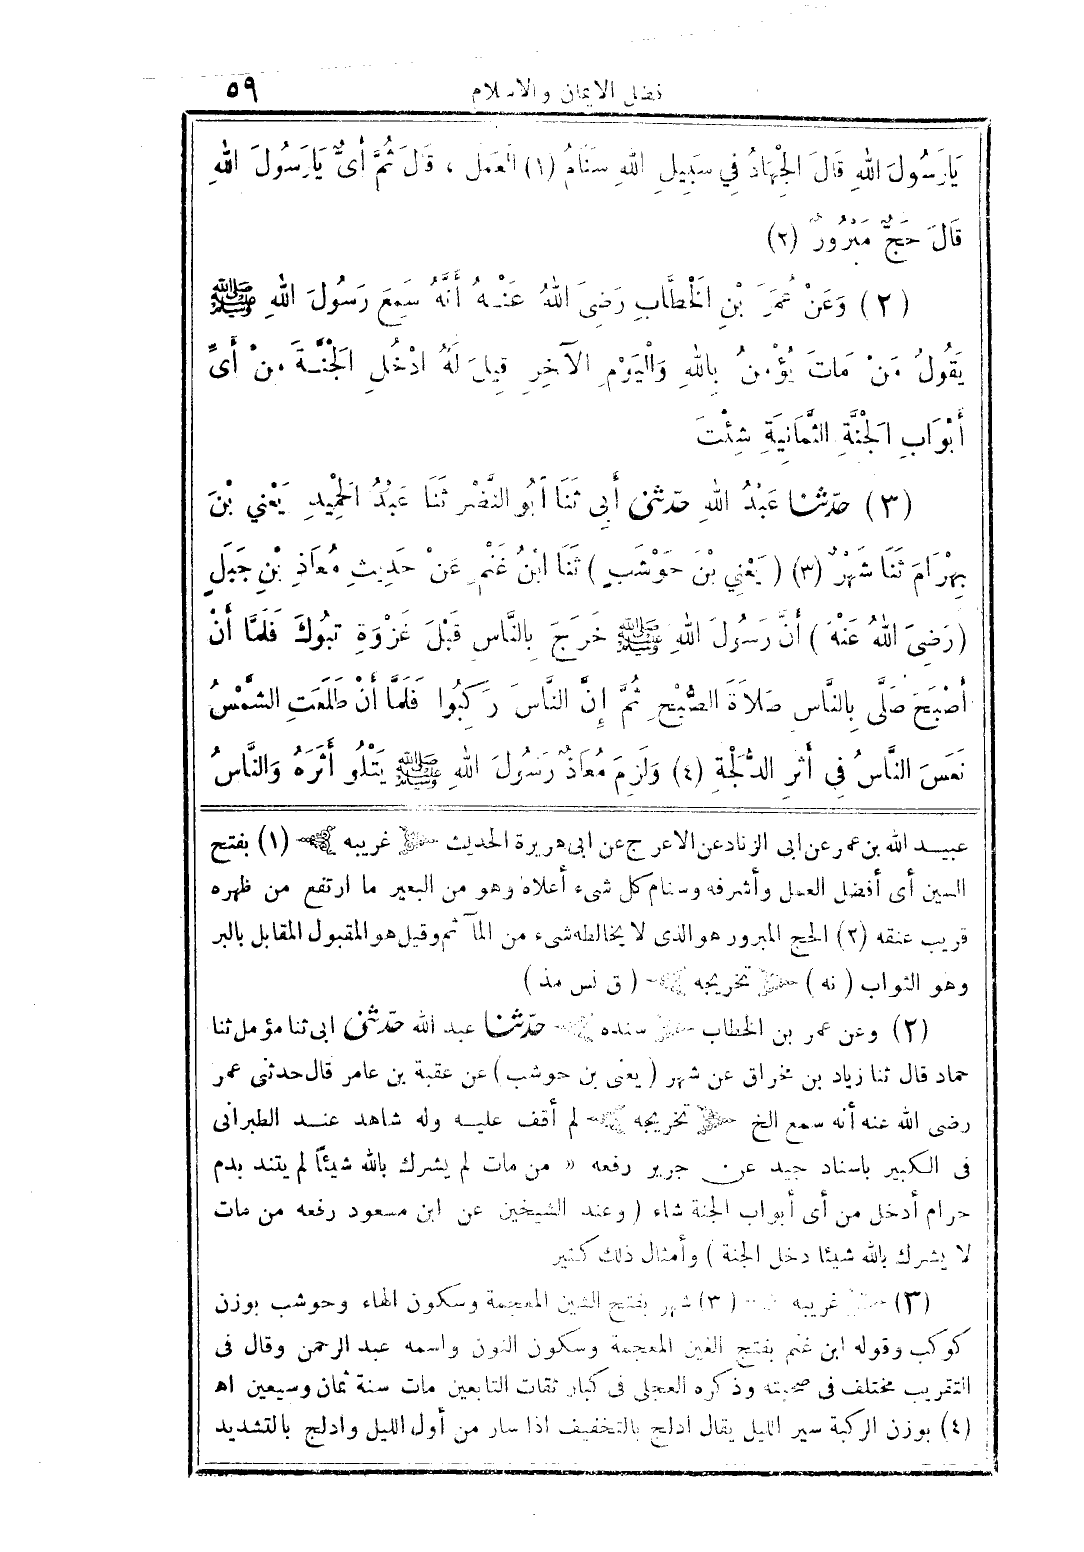 فضل الايمان والاسلام ٥٩
يَارَسُولَ اللهِ قَالَ الْجِهَادُ فِي سَبِيلِ اللهِ سَنَامُ (١) الْعَمَلِ ، قَالَ ثُمَّ أَىٌّ يَارَسُولَ اللهِ
قَالَ حَجٌّ مَبْرُورٌ (٢)
(٢) وَعَنْ عُمَرَ بْنِ الْخَطَّابِ رَضِىَ اللهُ عَنْهُ أَنَّهُ سَمِعَ رَسُولَ اللهِ ﷺ
يَقُولُ مَنْ مَاتَ يُؤْمِنُ بِاللهِ وَالْيَوْمِ الْآخِرِ قِيلَ لَهُ ادْخُلِ الْجَنَّةَ مِنْ أَىِّ
أَبْوَابِ الْجَنَّةِ الثَّمَانِيَةِ شِئْتَ
(٣) حدّثنا عَبْدُ اللهِ حدّثنى أَبِى ثَنَا أَبُو النَّضْرِ ثَنَا عَبْدُ الْحَمِيدِ يَعْنِي بْنَ
بِهْرَامَ ثَنَا شَهْرٌ (٣) (يَعْنِي بْنَ حَوْشَبٍ) ثَنَا ابْنُ غَنْمٍ عَنْ حَدِيثِ مُعَاذِ بْنِ جَبَلٍ
(رَضِىَ اللهُ عَنْهُ) أَنَّ رَسُولَ اللهِ ﷺ خَرَجَ بِالنَّاسِ قَبْلَ غَزْوَةِ تَبُوكَ فَلَمَّا أَنْ
أَصْبَحَ صَلَّى بِالنَّاسِ صَلَاةَ الصُّبْحِ ثُمَّ إِنَّ النَّاسَ رَكِبُوا فَلَمَّا أَنْ طَلَعَتِ الشَّمْسُ
نَعَسَ النَّاسُ فِى أَثَرِ الدُّلْجَةِ (٤) وَلَزِمَ مُعَاذٌ رَسُولَ اللهِ ﷺ يَتْلُو أَثَرَهُ وَالنَّاسُ
عبيد الله بن عمر عن ابى الزناد عن الاعرج عن ابى هريرة الحديث غريبه (١) بفتح
السين أى أفضل العمل وأشرفه وسنام كل شىء أعلاه وهو من البعير ما ارتفع من ظهره
قريب عنقه (٢) الحج المبرور هو الذى لا يخالطه شىء من المآثم وقيل هو المقبول المقابل بالبر
وهو الثواب (نه) تخريجه (ق نس مذ)
(٢) وعن عمر بن الخطاب سنده حدّثنا عبد الله حدّثنى ابى ثنا مؤمل ثنا
حماد قال ثنا زياد بن مخراق عن شهر (يعنى بن حوشب) عن عقبة بن عامر قال حدثنى عمر
رضى الله عنه أنه سمع الخ تخريجه لم أقف عليه وله شاهد عند الطبرانى
فى الكبير باسناد جيد عن جرير رفعه « من مات لم يشرك بالله شيئاً لم يتند بدم
حرام أدخل من أى أبواب الجنة شاء (وعند الشيخين عن ابن مسعود رفعه من مات
لا يشرك بالله شيئا دخل الجنة) وأمثال ذلك كثير
(٣) غريبه (٣) شهر بفتح الشين المعجمة وسكون الهاء وحوشب بوزن
كوكب وقوله ابن غنم بفتح الغين المعجمة وسكون النون واسمه عبد الرحمن وقال فى
التقريب مختلف فى صحبته وذكره العجلى فى كبار ثقات التابعين مات سنة ثمان وسبعين اه
(٤) بوزن الركبة سير الليل يقال ادلج بالتخفيف اذا سار من أول الليل وادلج بالتشديد